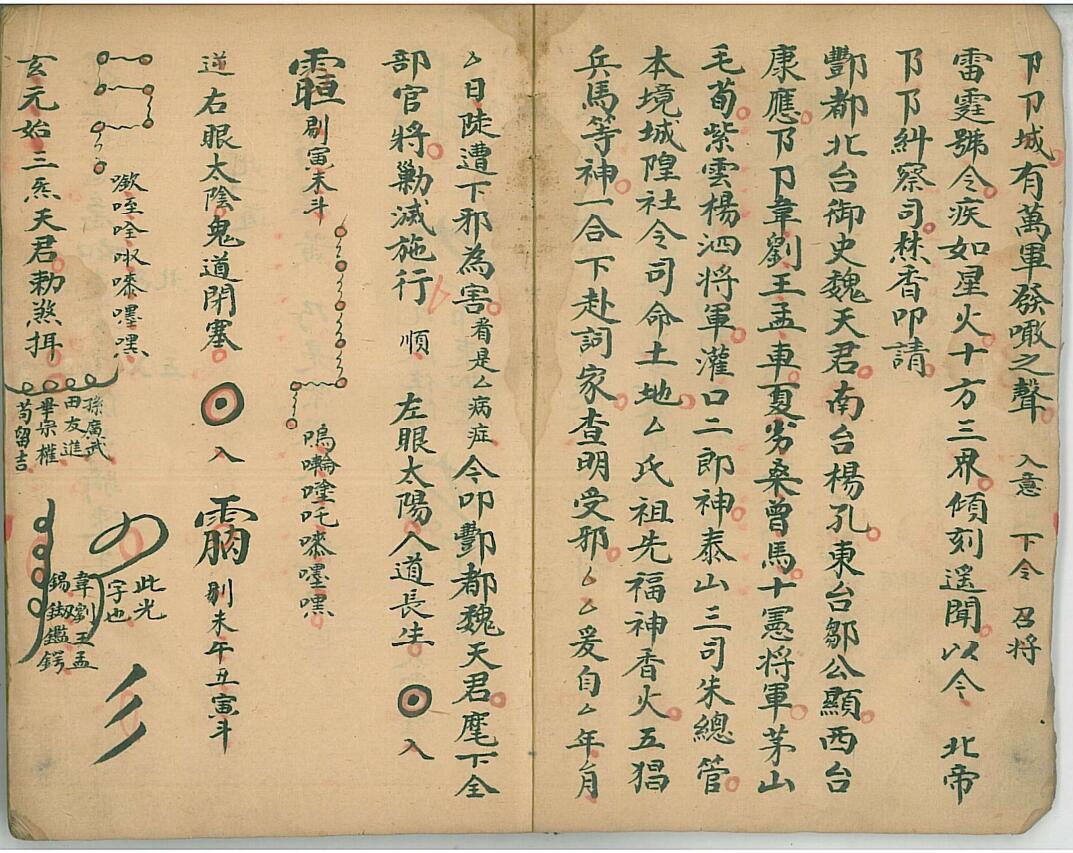 卩卩城有萬軍發噉之聲 入意 下令 召將
雷霆號令疾如星火十方三界傾刻遥聞以令 北帝
卩卩糾察司焚香叩請
酆都北台御史魏天君南台楊孔東台鄒公顯西台
康應卩卩韋劉王孟車夏劣桑曾馬十憲將軍茅山
毛荀紫雲楊泗將軍灌口二郎神泰山三司朱總管
本境城隍社令司命土地厶氏祖先福神香火五猖
兵馬等神一合下赴詞家查明受邪厶厶爰自厶年月
厶日陡遭下邪為害看是厶病症今叩酆都魏天君麾下全
部官將勦滅施行 順 左眼太陽人道長生 入
剔寅未斗 嗚㗖吒嚜嘿
逆右眼太陰鬼道閉塞 入 剔未午丑寅斗
嘿
玄元始三炁天君勅煞挕
孫廣武
田友進
畢宗權
苟留吉
此光
字也
韋劉王孟